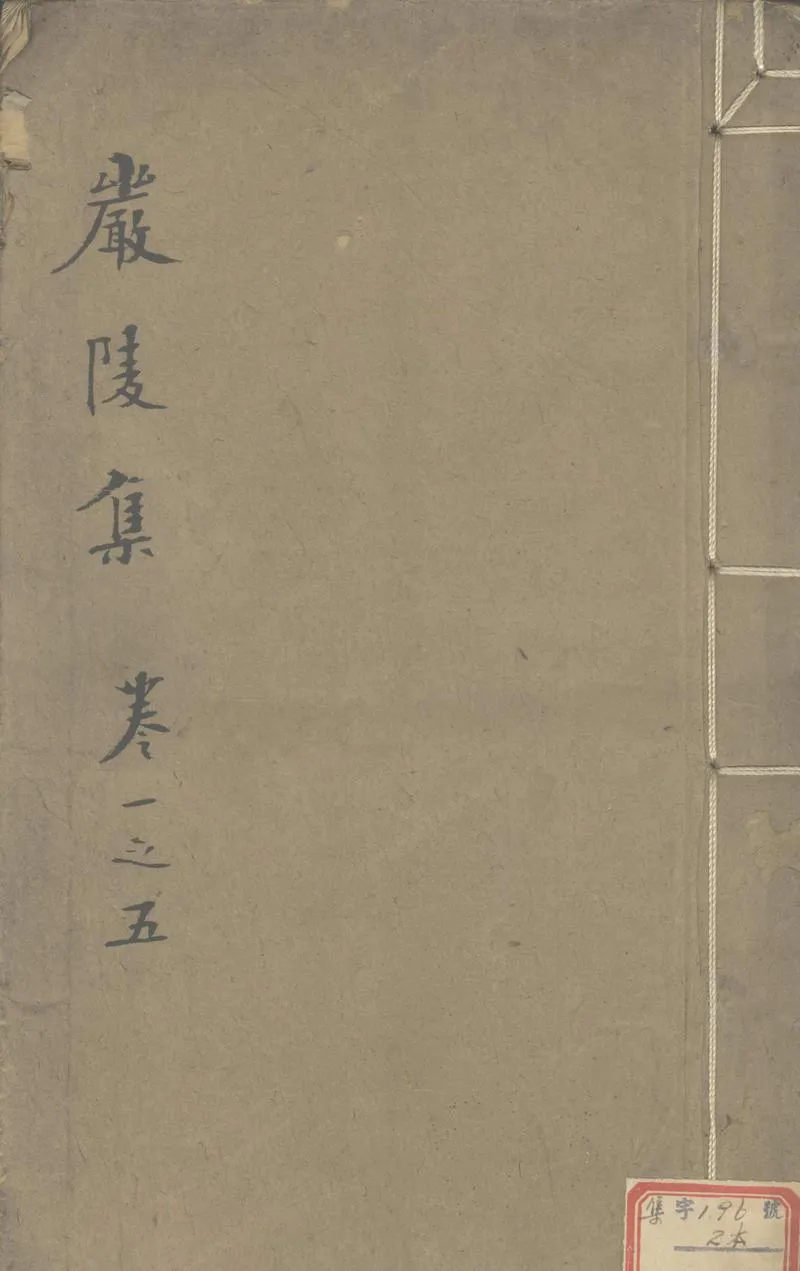 嚴陵集 卷一之五
集字196號
2本